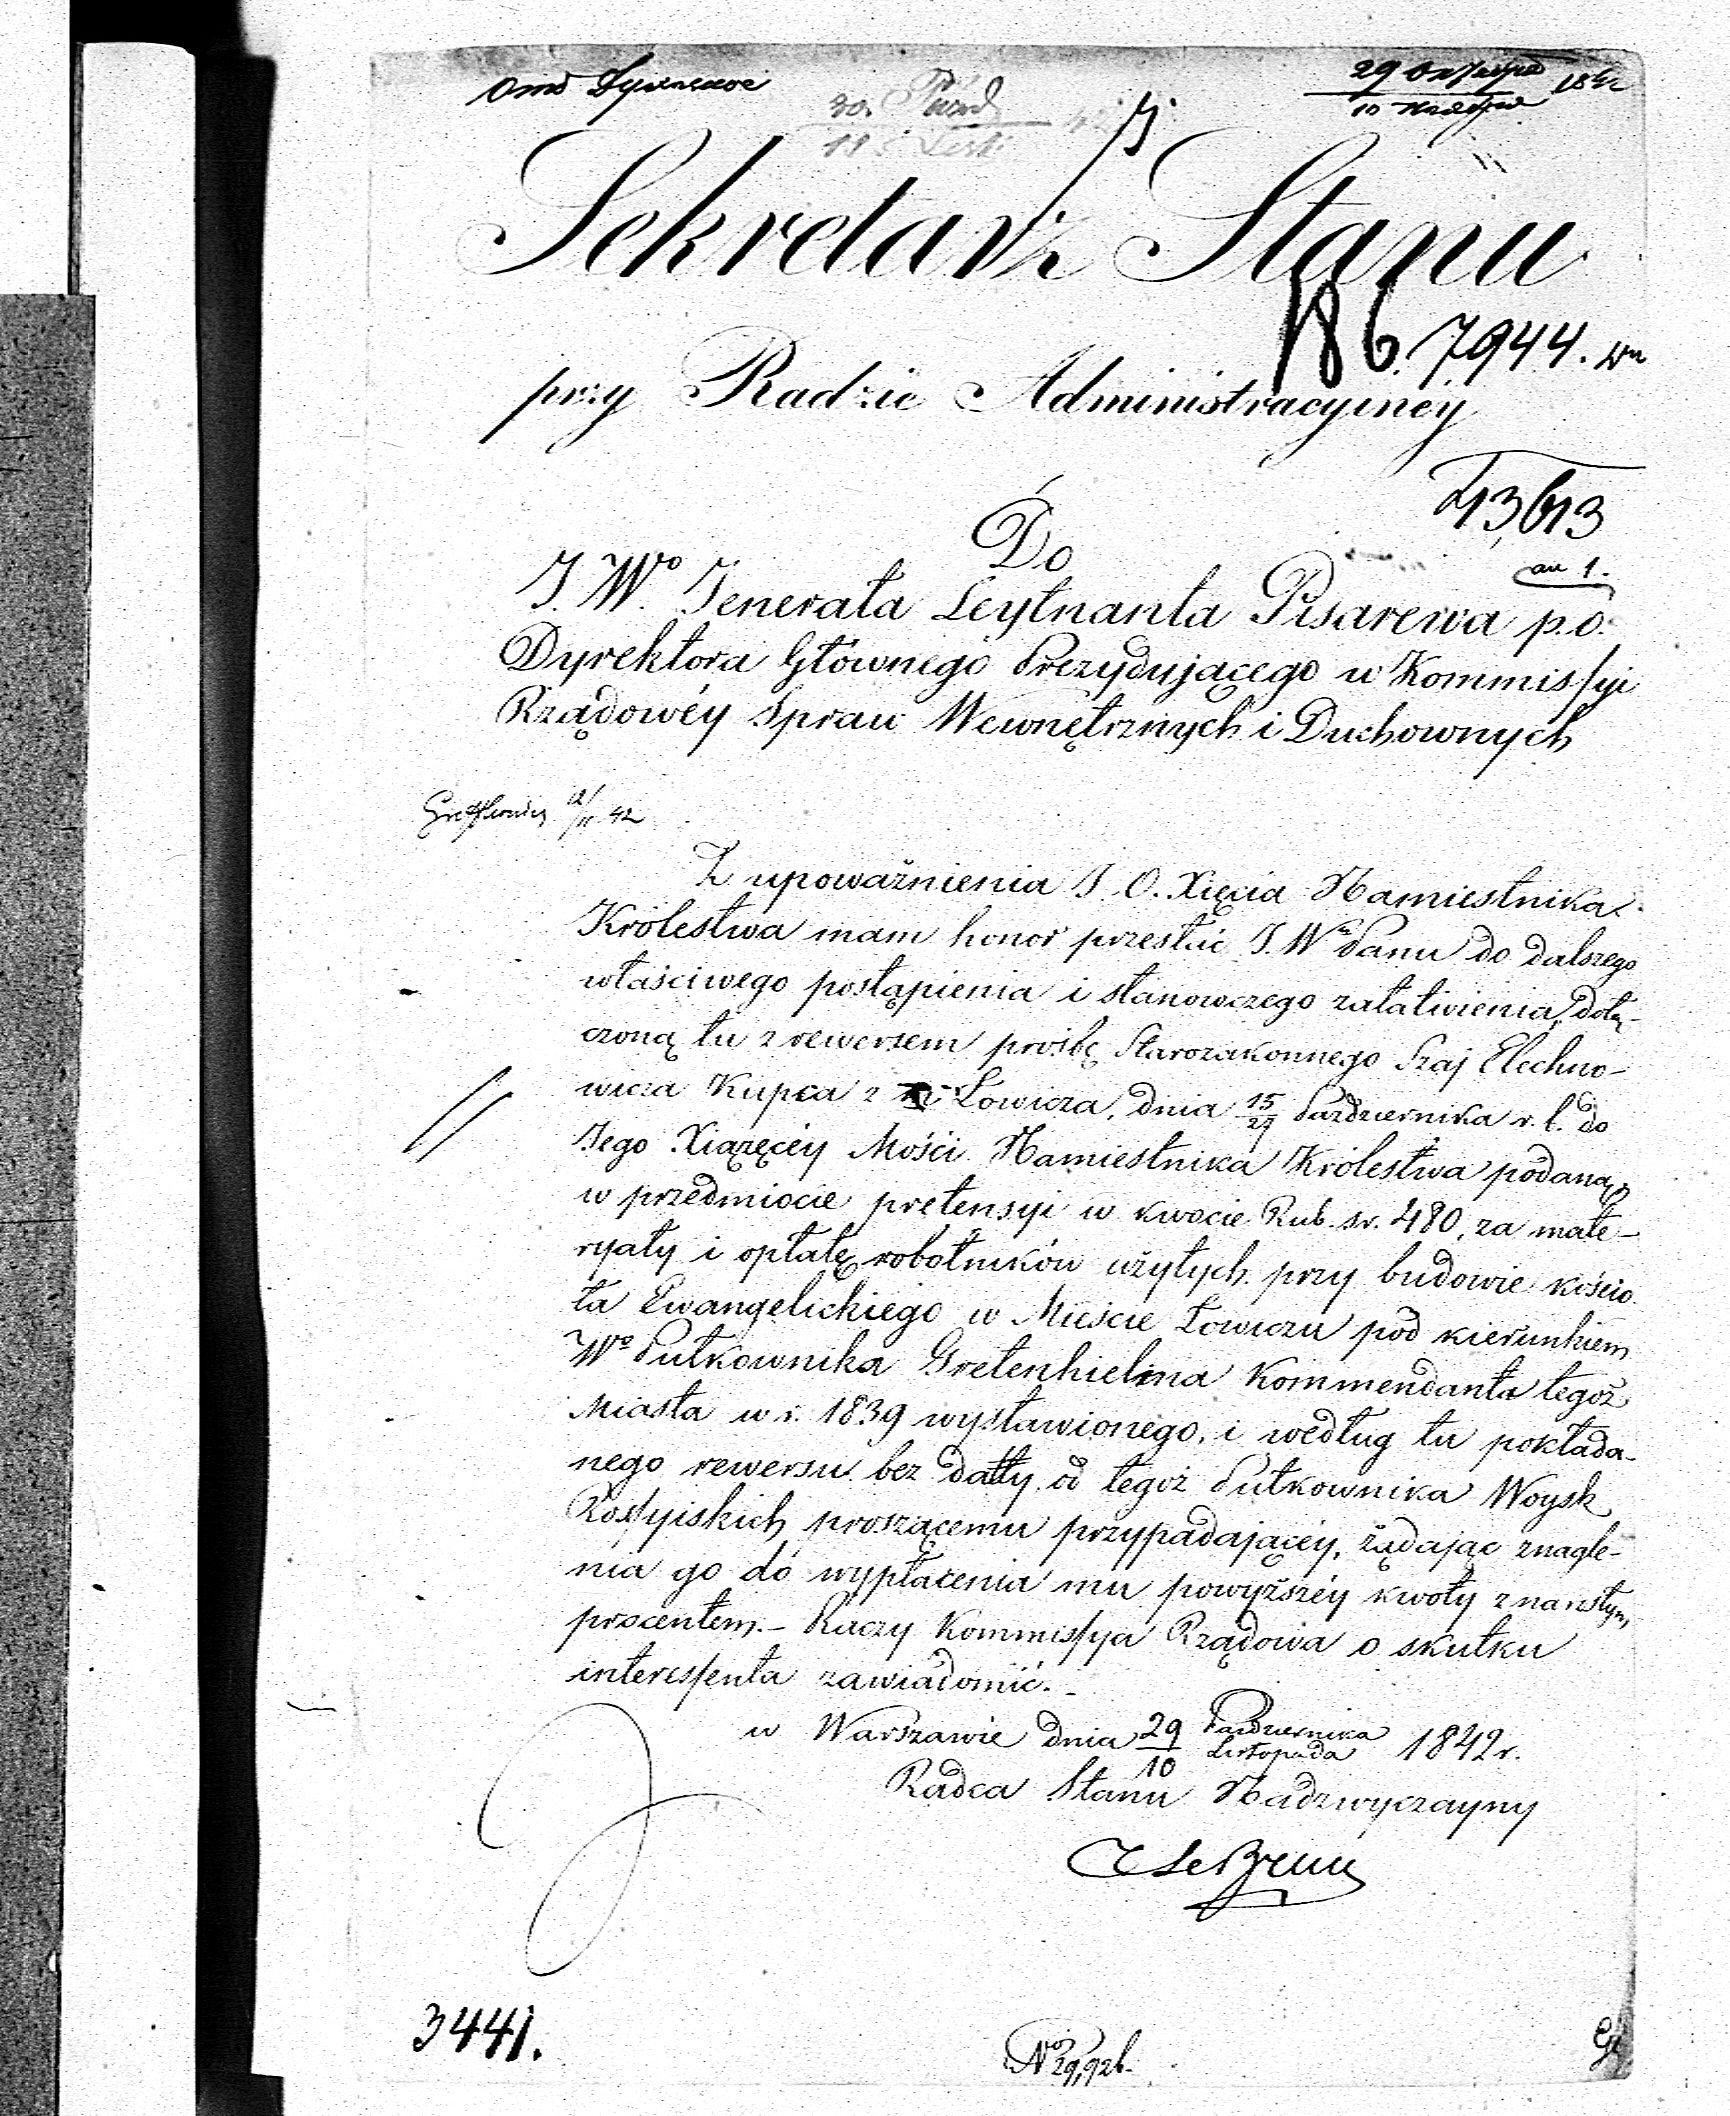 Sekretarz Stanu
186. 7944.
przy Radzie Administracyiney
43,613
Do
an 1.
J. Wo Jenerała Leytnanta Pisarewa p.o.
Dyrektora Głównego Prezydującego w Kommisſyi
Rządowéy Spraw Wewnętrznych i Duchownych
12/11 42
Z upoważnienia J. O. Xięcia Namiestnika
Królestwa mam honor przesłać J. Wu Panu do dalszego
właściwego postąpienia i stanowczego załatwienia, dołą-
czoną tu z rewersem prośbę Starozakonnego Szaj Elechno-
wicza Kupca z Łowicza, dnia 15/27 Października r. b. do
Jego Xiążęcéy Mości Namiestnika Królestwa podaną,
w przedmiocie pretensyi w kwocie Rub. sr. 480, za mate-
ryały i opłatę robotników użytych przy budowie kościo-
ła Ewangelickiego w Mieście Łowiczu pod kierunkiem
Wo Pułkownika Gretenhielma Kommendanta tegoż
Miasta w r. 1839 wystawionego, i według tu pokłada-
nego rewersu bez datty od tegoż Pułkownika Woysk
Rosſyiskich proszącemu przypadającéy, żądając znagle-
nia go do wypłacenia mu powyższéy kwoty z narosłym
procentem. - Raczy Kommisſya Rządowa o skutku
interesſenta zawiadomić. -
w Warszawie dnia 29 Października / 10 Listopada 1842 r.
Radca Stanu Nadzwyczayny
Le Brun
3441.
No 29,926.